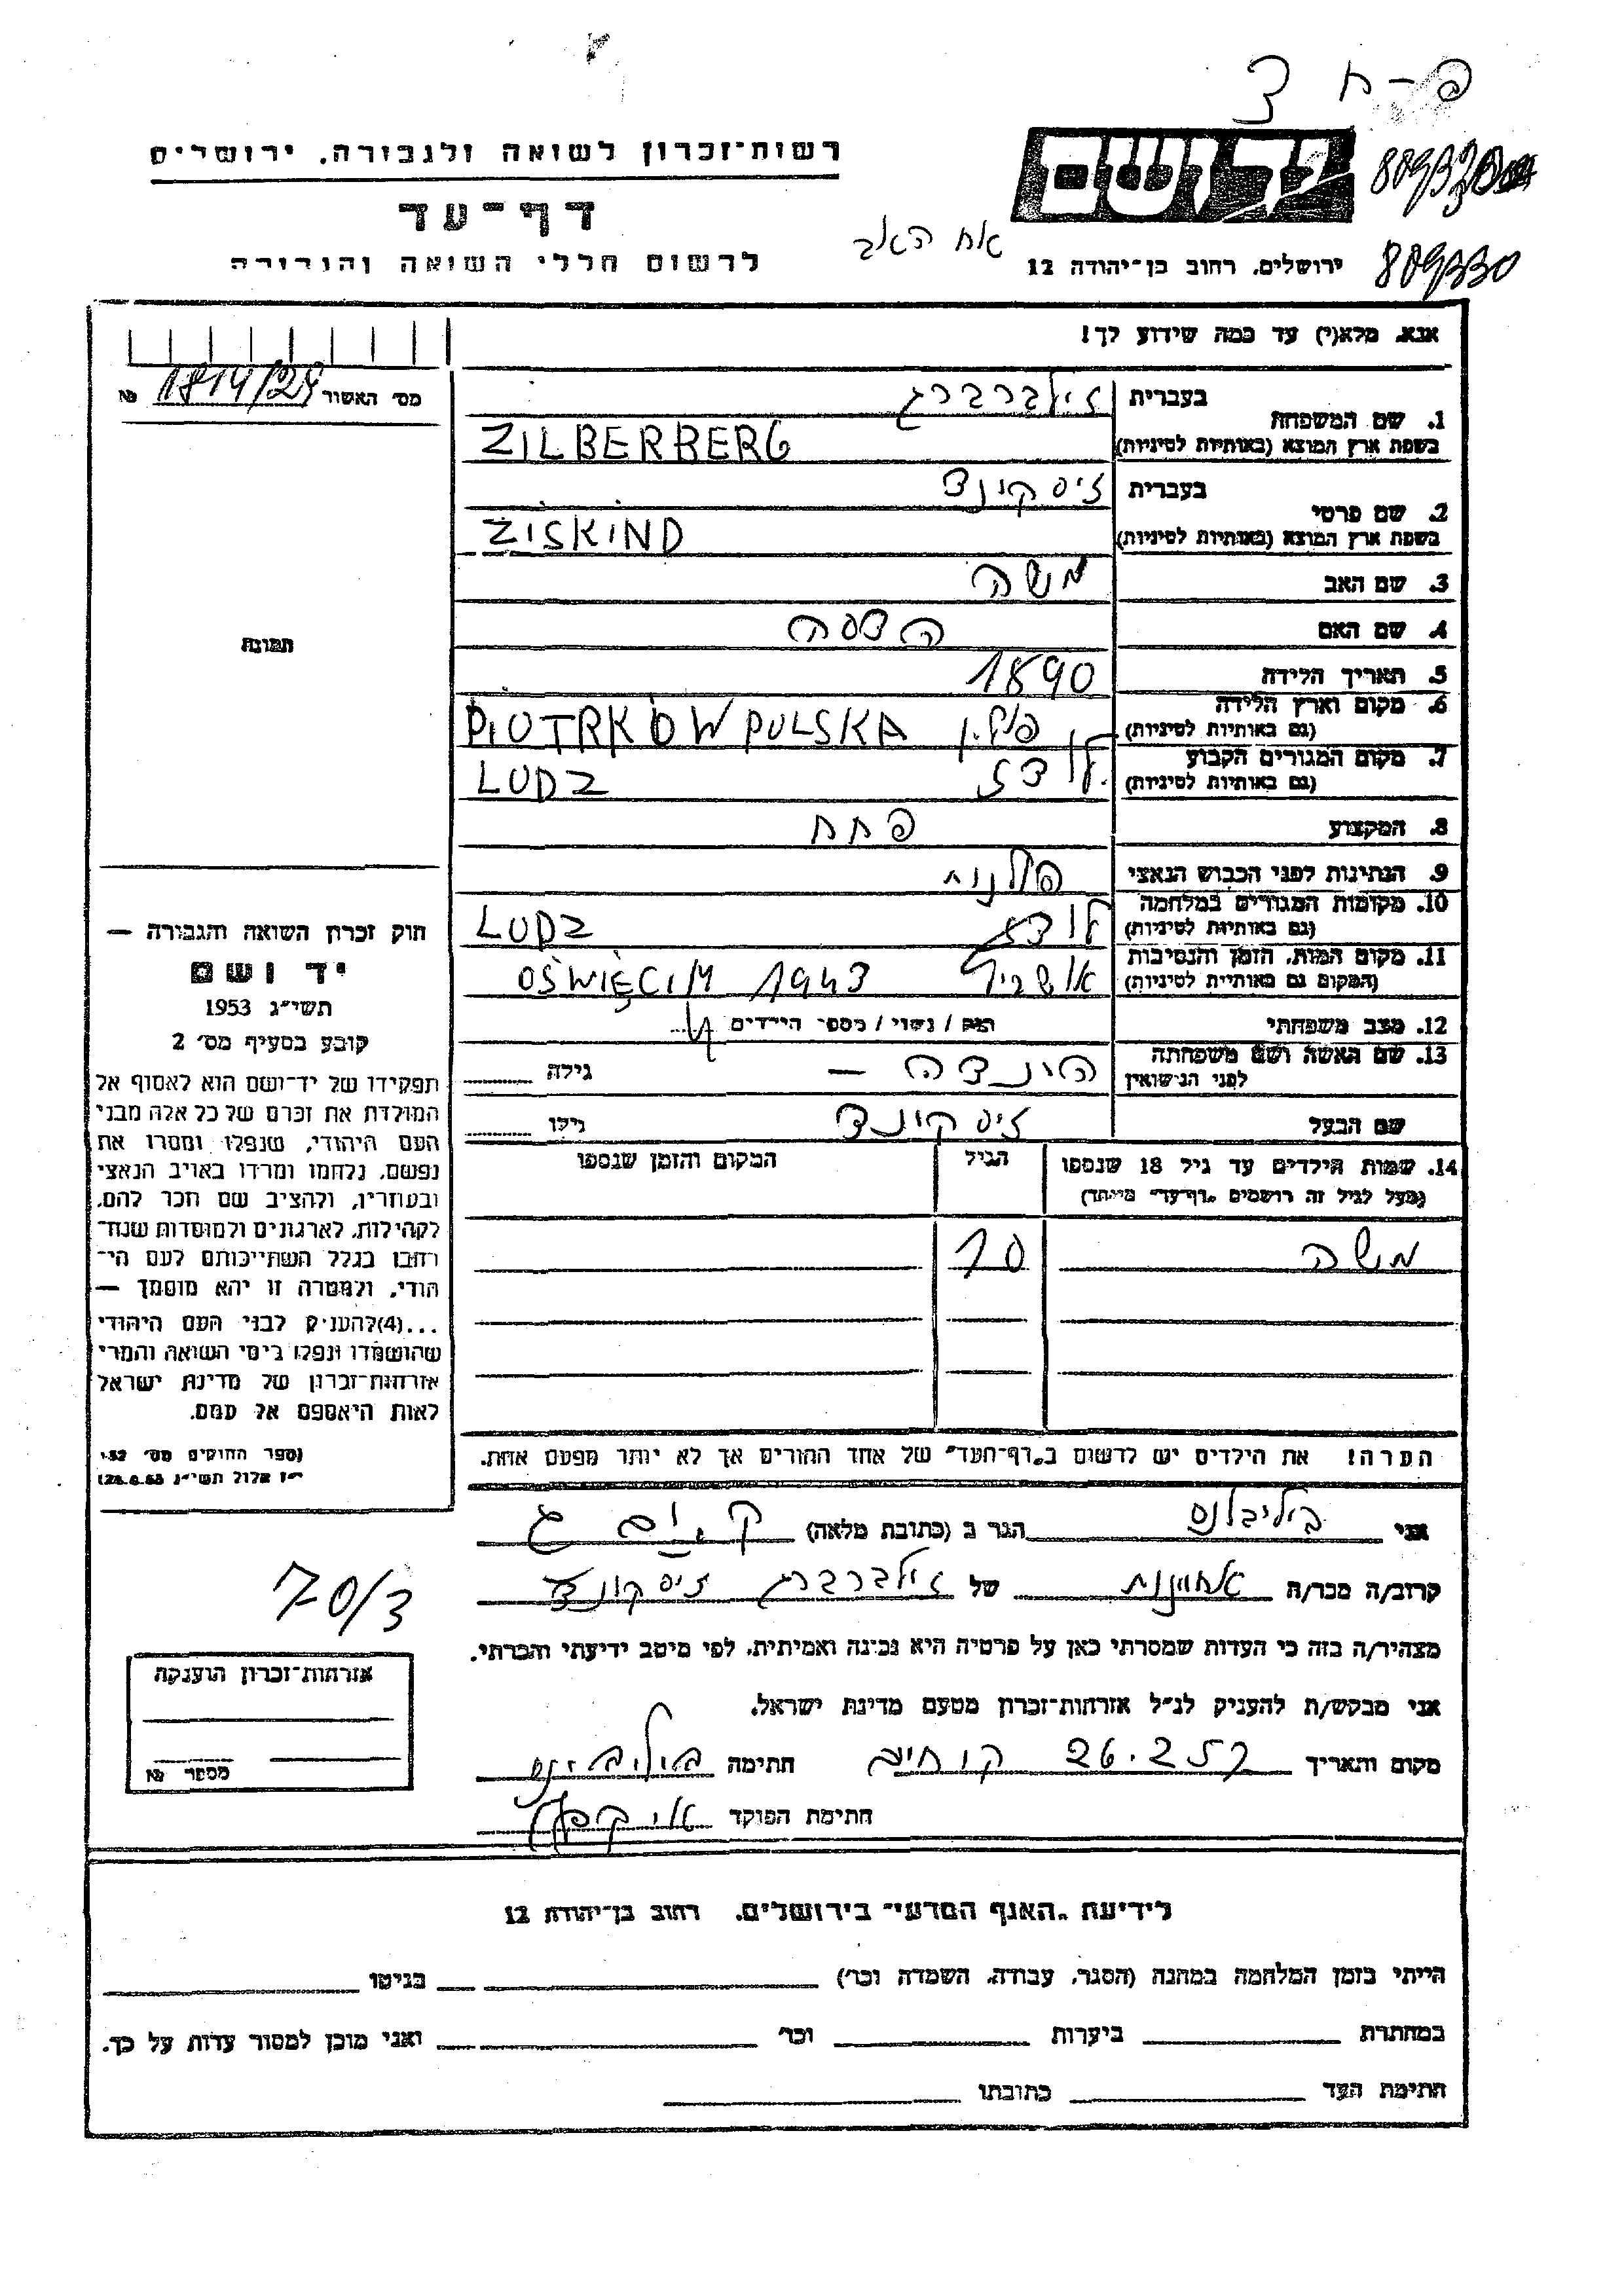 פ-ח 3
רשות-זכרון לשואה ולגבורה, ירושלים
יד ושם
דף-עד
809330
אח האב
לרשום חללי השואה והגבורה
ירושלים, רחוב בן-יהודה 12
אנא, מלא(י) עד כמה שידוע לך!
מס' האשור 1814/29 №
1. שם המשפחה
בעברית זילברברג
בשפת ארץ המוצא (באותיות לטיניות) ZILBERBERG
2. שם פרטי
בעברית זיסקונד
בשפת ארץ המוצא (באותיות לטיניות) ZISKIND
3. שם האב משה
4. שם האם הדסה
תמונה
5. תאריך הלידה 1890
6. מקום וארץ הלידה
(גם באותיות לטיניות) PIOTRKOW POLSKA
7. מקום המגורים הקבוע לודז
(גם באותיות לטיניות) LODZ
8. המקצוע פחח
9. הנתינות לפני הכבוש הנאצי פולנית
10. מקומות המגורים במלחמה לודז
(גם באותיות לטיניות) LODZ
11. מקום המות, הזמן והנסיבות
(המקום גם באותיות לטיניות) OŚWIĘCIM 1943
12. מצב משפחתי רווק / נשוי / מספר הילדים 4
13. שם האשה ושם משפחתה
לפני הנישואין הינדה — גילה
שם הבעל זיסקונד גילו
14. שמות הילדים עד גיל 18 שנספו
(מעל לגיל זה רושמים "דף-עד" מיוחד)
הגיל
המקום והזמן שנספו
משה 10
הערה! את הילדים יש לרשום ב"דף-העד" של אחד ההורים אך לא יותר מפעם אחת.
חוק זכרון השואה והגבורה —
יד ושם
תשי"ג 1953
קובע בסעיף מס' 2
תפקידו של יד-ושם הוא לאסוף אל
המולדת את זכרם של כל אלה מבני
העם היהודי, שנפלו ומסרו את
נפשם, נלחמו ומרדו באויב הנאצי
ובעוזריו, ולהציב שם וזכר להם,
לקהילות, לארגונים ולמוסדות שנח-
רבו בגלל השתייכותם לעם הי-
הודי, ולמטרה זו יהא מוסמך —
...(4) להעניק לבני העם היהודי
שהושמדו ונפלו בימי השואה והמרי
אזרחות-זכרון של מדינת ישראל
לאות היאספם אל עמם.
(ספר החוקים מס' 132
י"ז אלול תשי"ג 28.8.53)
אני הגר ב (כתובת מלאה)
קרוב/ה מכר/ה אחיינית של זילברברג זיסקונד
70/3
מצהיר/ה בזה כי העדות שמסרתי כאן על פרטיה היא נכונה ואמיתית, לפי מיטב ידיעתי והכרתי.
אני מבקש/ת להעניק לנ"ל אזרחות-זכרון מטעם מדינת ישראל.
מקום ותאריך 26.2.57 חתימה
חתימת הפוקד
אזרחות-זכרון הוענקה
מספר №
לידיעת "האגף המדעי" בירושלים, רחוב בן-יהודה 12
הייתי בזמן המלחמה במחנה (הסגר, עבודה, השמדה וכו') בגיטו
במחתרת ביערות וכו' ואני מוכן למסור עדות על כך.
חתימת העד כתובתו